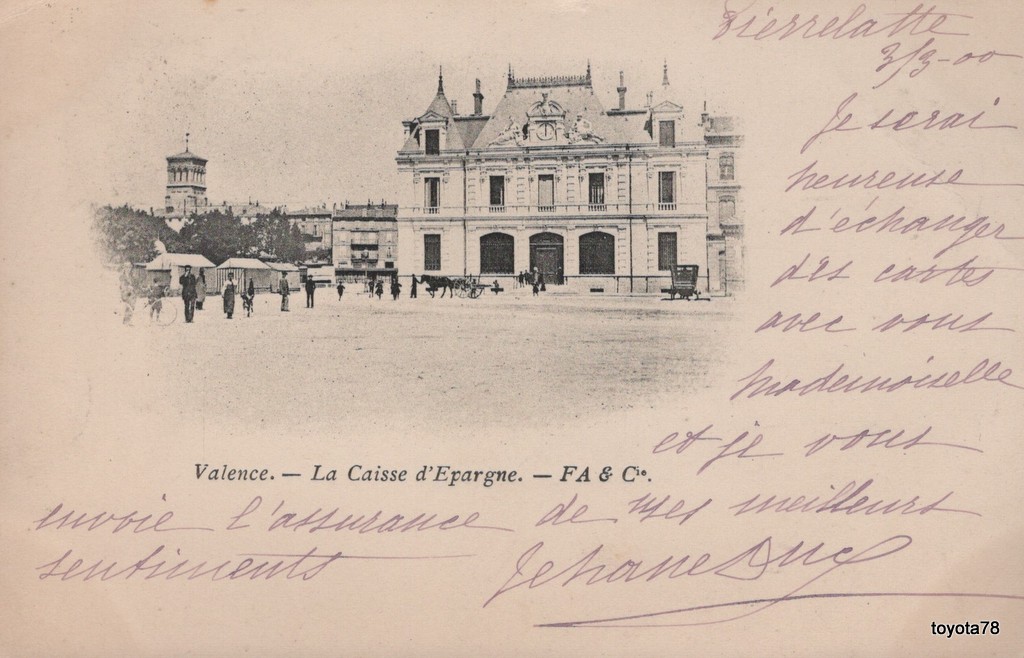 Pierrelatte
3/3-00
Je serai
heureuse
d'échanger
des cartes
avec vous
mademoiselle
et je vous
Valence. — La Caisse d'Epargne. — FA & Cie.
envoie l'assurance de mes meilleurs
sentiments Jehanne Duc
toyota78